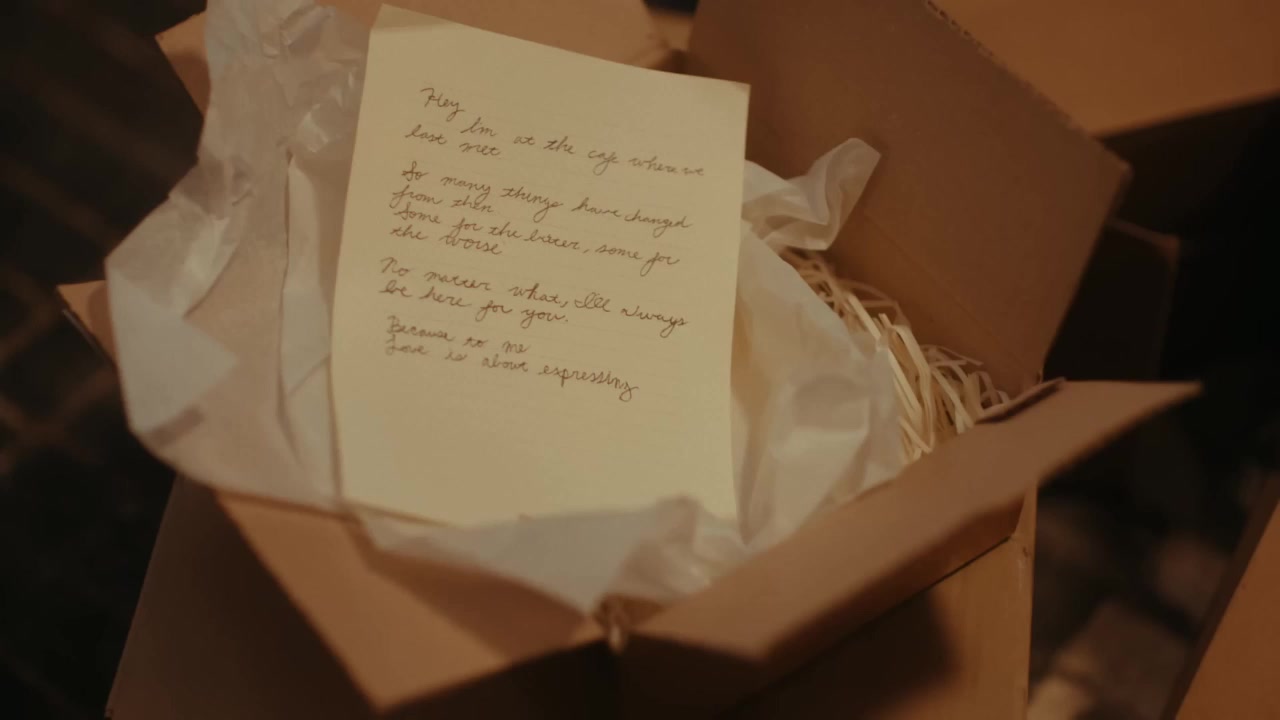 Hey
I'm at the cafe where we
last met
So many things have changed
from then.
Some for the better, some for
the worse
No matter what, I'll always
be here for you.
Because to me
Love is about expressing